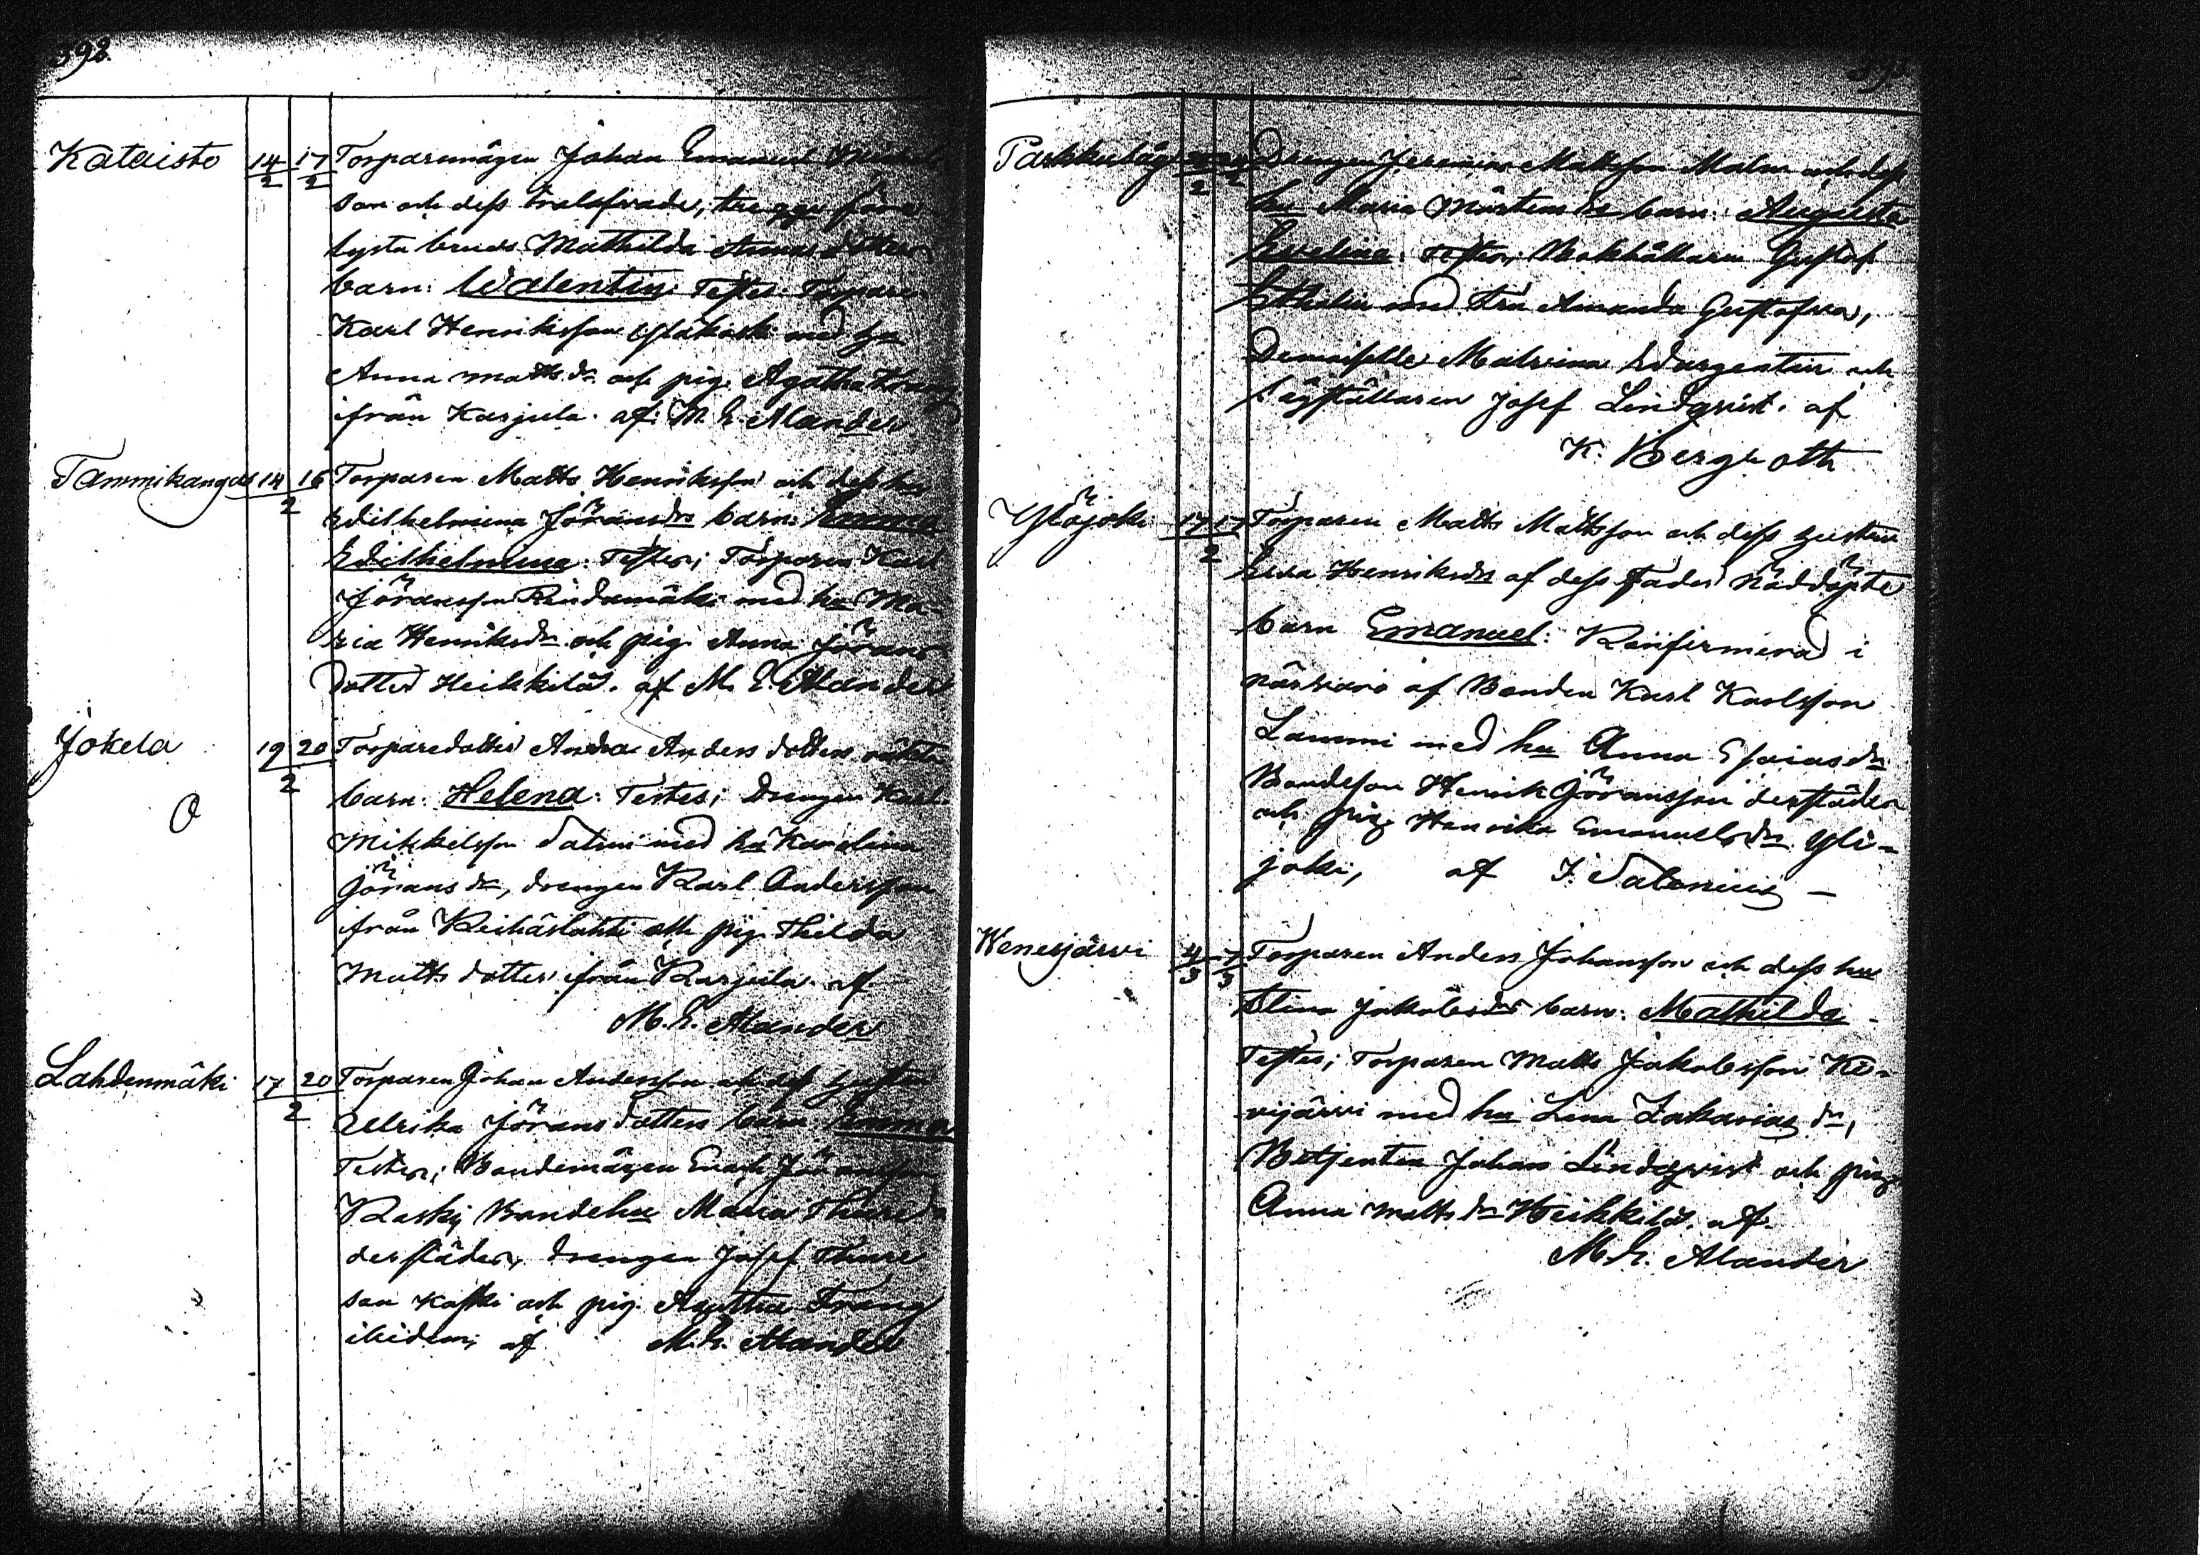 392.
Kataisto 14/2 17/2 Torparemågen Johan Emanuel
son och dess trolofvade, tre ggr förelysta
bruds Mathilda Annas dotters
barn: Walentin: Testes: Torparen
Karl Henriksson med hu
Anna Mattsdr och pig. Agatha
ifrån Karjula. af: M. E. Alander
Tammikangas 14 16/2 Torparen Matts Henriksson och dess hu
Wilhelmina Jöransdrs barn: Emma
Wilhelmina: Testes; Torparen Karl
Jöransson med hu Ma-
ria Henriksdr och pig. Anna Jörans
dotter Heikkilä. af M. E. Alander
Jokela 19 20/2 Torparedotter Anders dotters oäkta
barn: Helena: Testes; Drengen Karl
Mikkelsson Salmi med hu Karolina
Görans dr, drengen Karl Andersson
ifrån och pig. Thilda
Matts dotter ifrån Karjula. af
M. E. Alander
O
Lahdenmäki 17 20/2 Torparen Johan Andersson och dess hustru
Ulrika Jörans dotters barn Emma
Testes; Bondemågen Enoch Jöransson
Koski, Bondehu Maria Thure dr
derstädes, drengen Josef Thure
son Koski och pig. Agatha Frang
ibidem, af M. E. Alander
Drengen Jeremias Mattsson Malm och dess
hu Maria Mårtens drs barn: Augusta
Evelina: Testes; Bokhållaren Gustaf
med Fru Amanda Gustafva,
Demoiselle Malvina och
Sågställaren Josef Lindqvist. af
K. Bergroth
Ylöjoki 17 17/2 Torparen Matts Mattsson och dess hustru
Henriksdrs af dess fader nöddöpte
barn Emanuel: Konfirmerad i
närvaro af Bonden Karl Karlsson
Lammi med hu Anna Esaiasdr
Bondeson Henrik Göransson derstädes
och pig. Henrika Emanuelsdr Yli-
joki, af I. Salonius —
Wenesjärvi 4/3 7/3 Torparen Anders Johansson och dess hu
Stina Jakobsdrs barn: Mathilda
Testes; Torparen Matts Jakobsson Ke-
vijärvi med hu Lena Zakarias dr,
Betjenten Johan Lindqvist och pig.
Anna Matts dr Heikkilä. af.
M. E. Alander